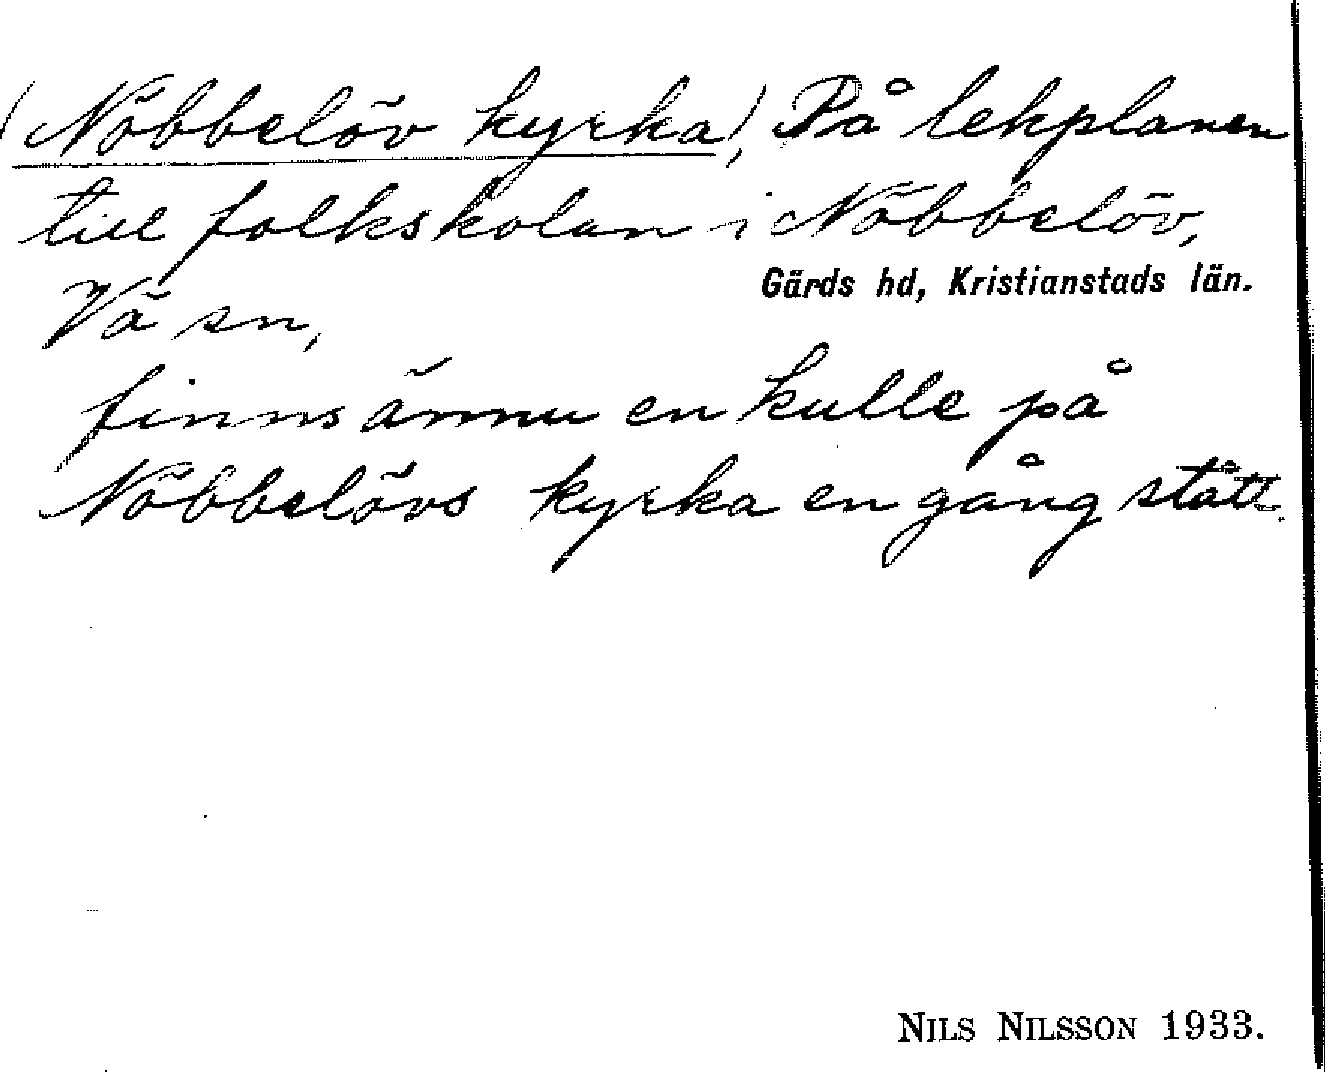 (Nöbbelöv kyrka), På lekplanen
till folkskolan i Nöbbelöv,
Gärds hd, Kristianstads län.
Vä sn,
finns ännu en kulle på
Nöbbelövs kyrka en gång stått.
NILS NILSSON 1933.